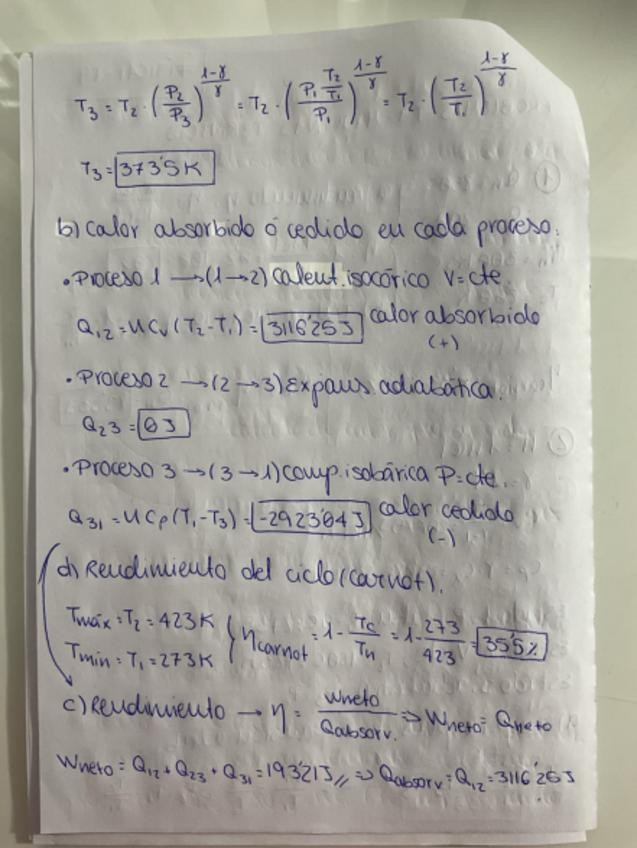 T₃ = T₂ · (P₂/P₃)^((1-γ)/γ) = T₂ · (P₁ T₂/T₁ / P₁)^((1-γ)/γ) = T₂ · (T₂/T₁)^((1-γ)/γ)
T₃ = 373'5 K
b) Calor absorbido ó cedido en cada proceso:
• Proceso 1 → (1→2) Calent. isocórico V=cte.
Q₁₂ = n Cv (T₂-T₁) = 3116'25 J calor absorbido
(+)
• Proceso 2 → (2→3) Expans. adiabática.
Q₂₃ = 0 J
• Proceso 3 → (3→1) comp. isobárica P=cte.
Q₃₁ = n Cp (T₁-T₃) = -2923'04 J calor cedido
(-)
d) Rendimiento del ciclo (Carnot).
Tmáx = T₂ = 423 K
Tmín = T₁ = 273 K
ηcarnot = 1 - Tc/Th = 1 - 273/423 = 35'5%
c) Rendimiento → η = Wneto/Qabsorv. ⇒ Wneto = Qneto
Wneto = Q₁₂ + Q₂₃ + Q₃₁ = 193'21 J // ⇒ Qabsorv = Q₁₂ = 3116'25 J